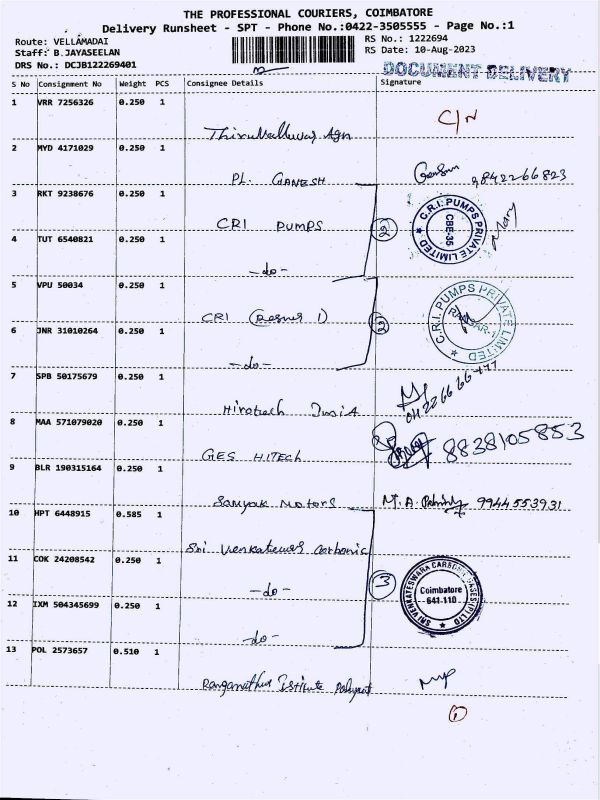 THE PROFESSIONAL COURIERS, COIMBATORE
Delivery Runsheet - SPT - Phone No.:0422-3505555 - Page No.:1
Route: VELLAMADAI
RS No.: 1222694
Staff: B.JAYASEELAN
RS Date: 10-Aug-2023
DRS No.: DCJB122269401
DOCUMENT DELIVERY
S No Consignment No Weight PCS Consignee Details Signature
1 VRR 7256326 0.250 1
C/N
Thiruvalluvar Agn
2 MYD 4171029 0.250 1
PL. GANESH
9842266823
3 RKT 9238676 0.250 1
CRI PUMPS
C.R.I. PUMPS PRIVATE LIMITED
CBE-35
Mary
4 TUT 6540821 0.250 1
-do-
5 VPU 50034 0.250 1
CRI
C.R.I. PUMPS PRIVATE LIMITED
6 JNR 31010264 0.250 1
-do-
7 SPB 50175679 0.250 1
8 MAA 571079020 0.250 1
GES HITECH
8838105853
9 BLR 190315164 0.250 1
Sanyak Motors
9944553931
10 HPT 6448915 0.585 1
Sri Venkateswar Carbonic
11 COK 24208542 0.250 1
-do-
3
SRI VENKATESWARA CARBONIC GASES (P) LTD
Coimbatore
641-110
12 IXM 504345699 0.250 1
-do-
13 POL 2573657 0.510 1
1